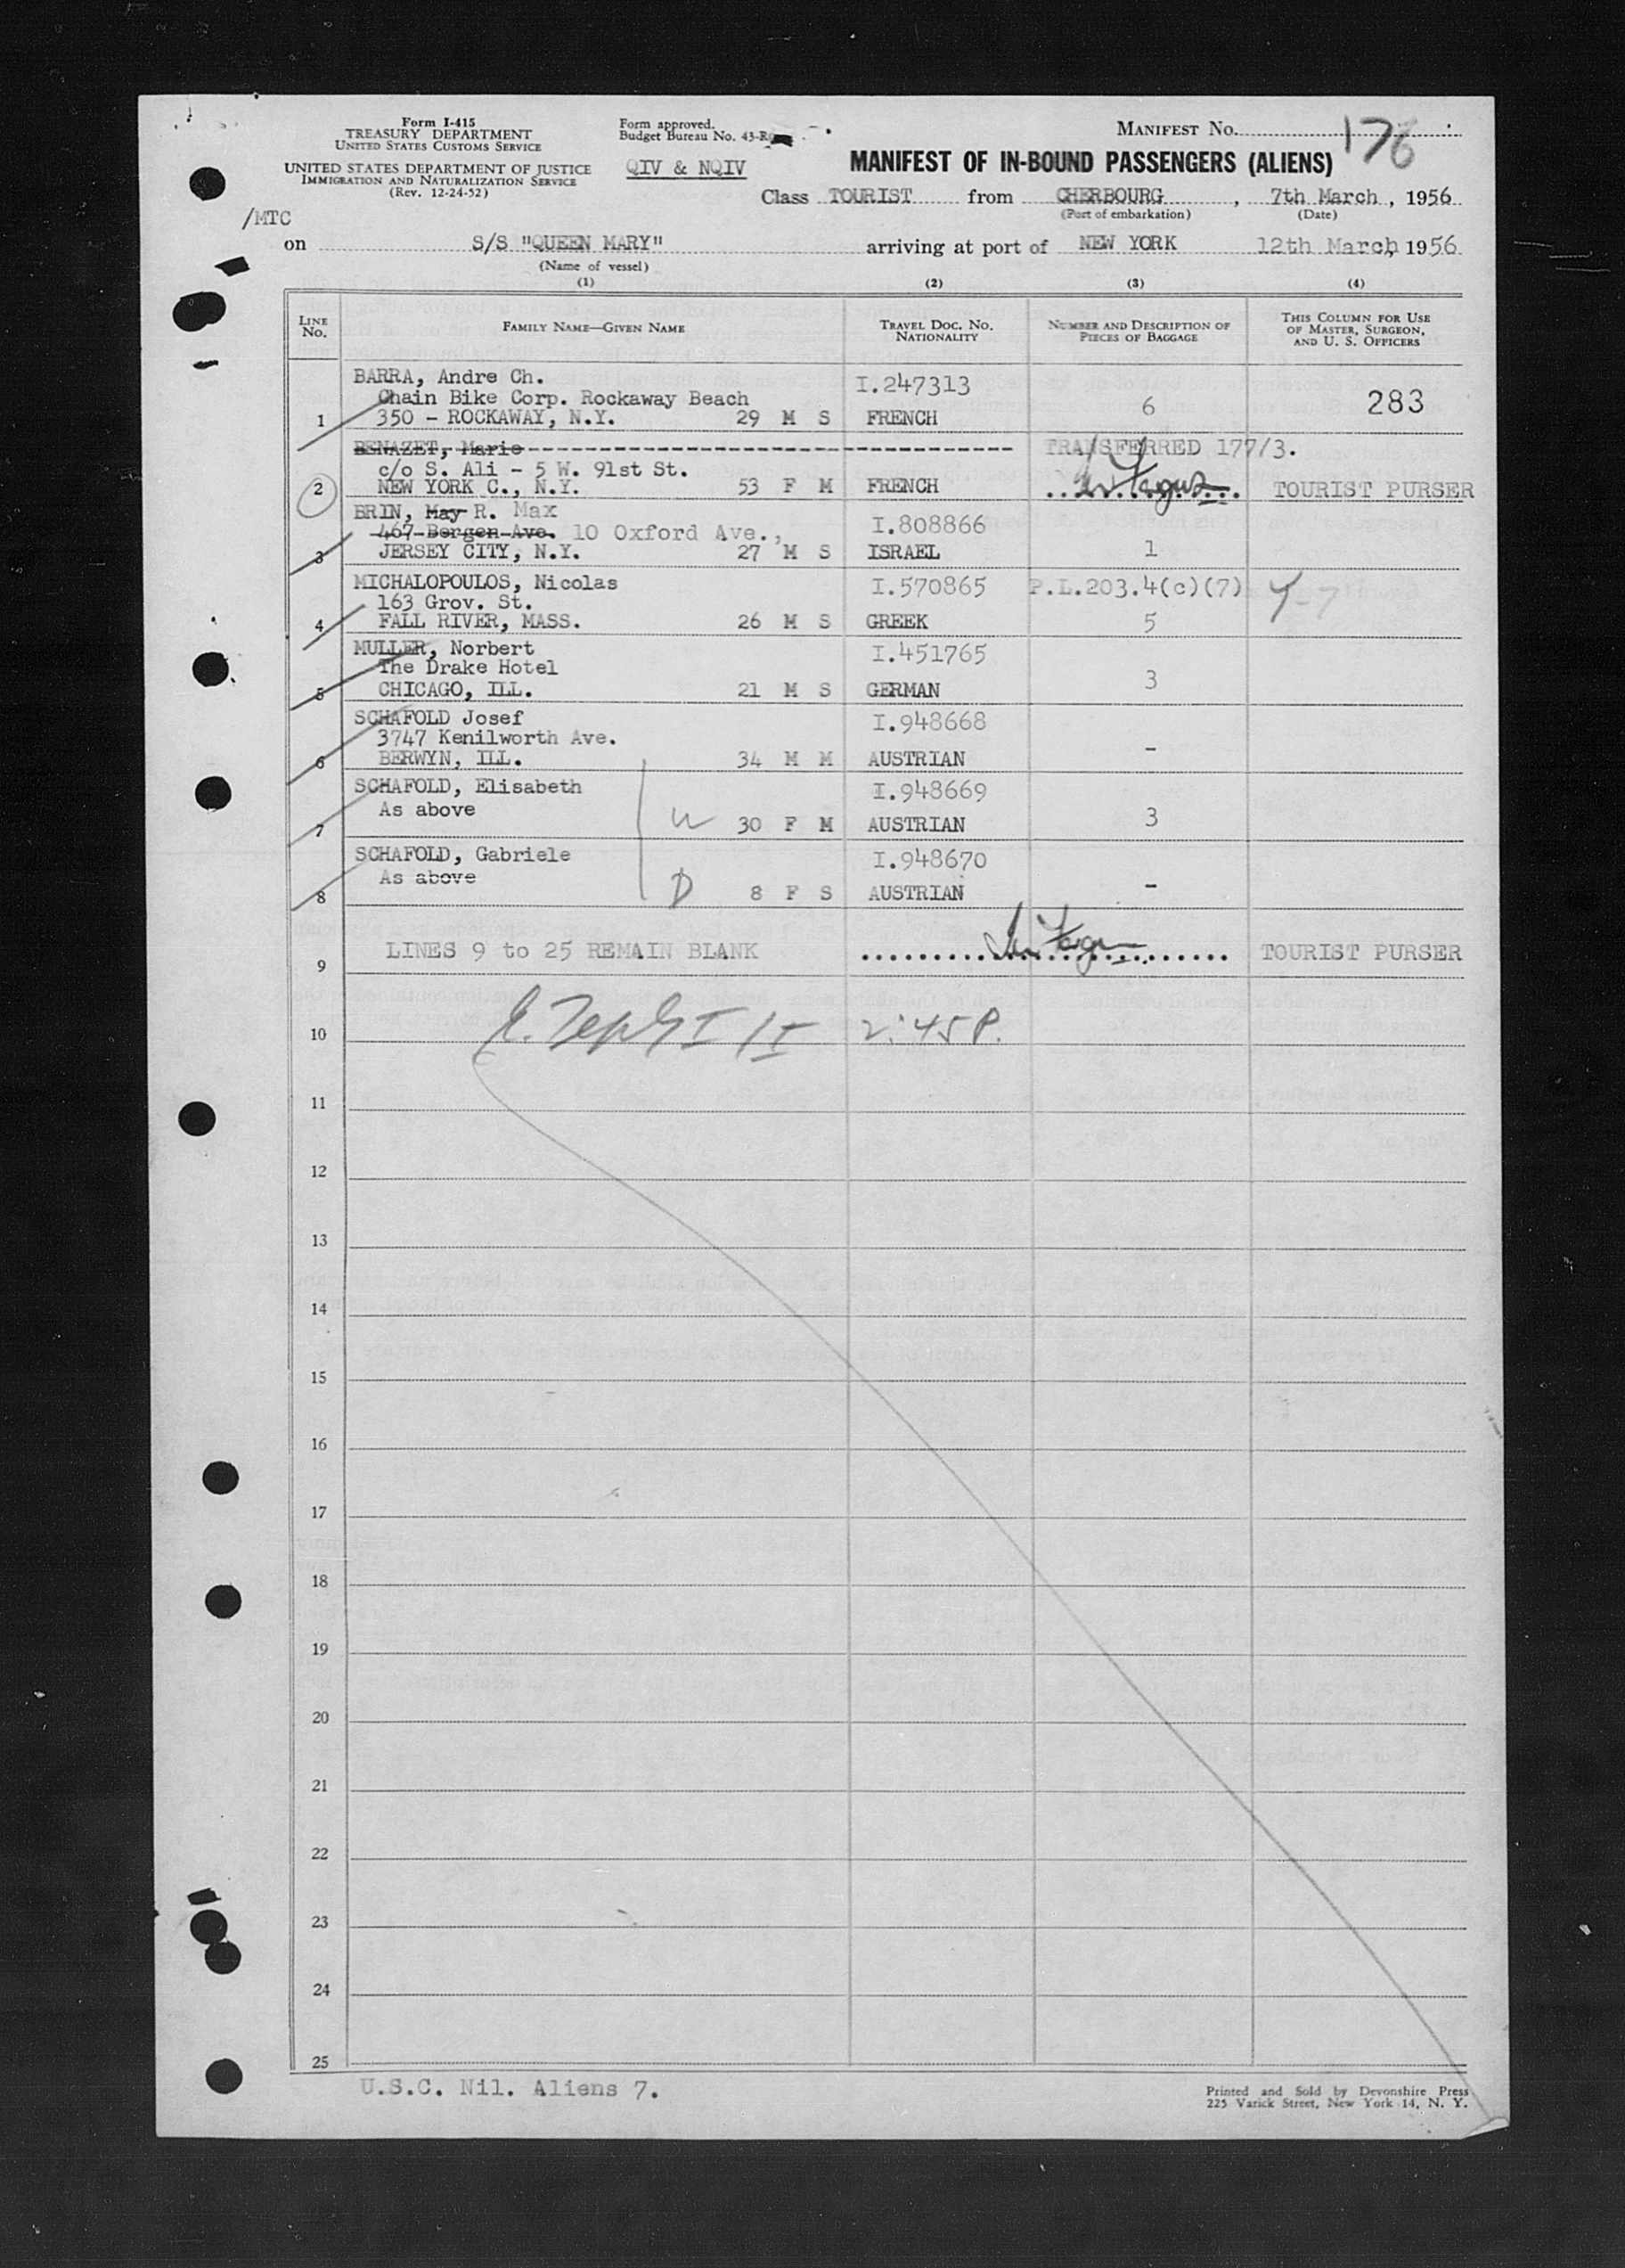 Form I-415
TREASURY DEPARTMENT
UNITED STATES CUSTOMS SERVICE
UNITED STATES DEPARTMENT OF JUSTICE
IMMIGRATION AND NATURALIZATION SERVICE
(Rev. 12-24-52)
Form approved.
Budget Bureau No. 43-R
QIV & NQIV
MANIFEST No. 176
MANIFEST OF IN-BOUND PASSENGERS (ALIENS)
Class TOURIST from CHERBOURG, 7th March, 1956
(Port of embarkation) (Date)
/MTC
on S/S "QUEEN MARY" arriving at port of NEW YORK 12th March, 1956
(Name of vessel)
(1) (2) (3) (4)
LINE No. FAMILY NAME—GIVEN NAME TRAVEL DOC. NO. NATIONALITY NUMBER AND DESCRIPTION OF PIECES OF BAGGAGE THIS COLUMN FOR USE OF MASTER, SURGEON, AND U. S. OFFICERS
BARRA, Andre Ch. I.247313
Chain Bike Corp. Rockaway Beach 6 283
1 350 - ROCKAWAY, N.Y. 29 M S FRENCH
BENAZET, Marie TRANSFERRED 177/3.
c/o S. Ali - 5 W. 91st St.
2 NEW YORK C., N.Y. 53 F M FRENCH TOURIST PURSER
BRIN, May R. Max I.808866
467 Bergen Ave. 10 Oxford Ave.,
3 JERSEY CITY, N.Y. 27 M S ISRAEL 1
MICHALOPOULOS, Nicolas I.570865 P.L.203.4(c)(7) Y-7
163 Grov. St.
4 FALL RIVER, MASS. 26 M S GREEK 5
MULLER, Norbert I.451765
The Drake Hotel
5 CHICAGO, ILL. 21 M S GERMAN 3
SCHAFOLD Josef I.948668
3747 Kenilworth Ave.
6 BERWYN, ILL. 34 M M AUSTRIAN -
SCHAFOLD, Elisabeth I.948669
As above
7 W 30 F M AUSTRIAN 3
SCHAFOLD, Gabriele I.948670
As above
8 D 8 F S AUSTRIAN -
LINES 9 to 25 REMAIN BLANK TOURIST PURSER
9
10 2:45 P.
11
12
13
14
15
16
17
18
19
20
21
22
23
24
25
U.S.C. Nil. Aliens 7.
Printed and Sold by Devonshire Press
225 Varick Street, New York 14, N. Y.